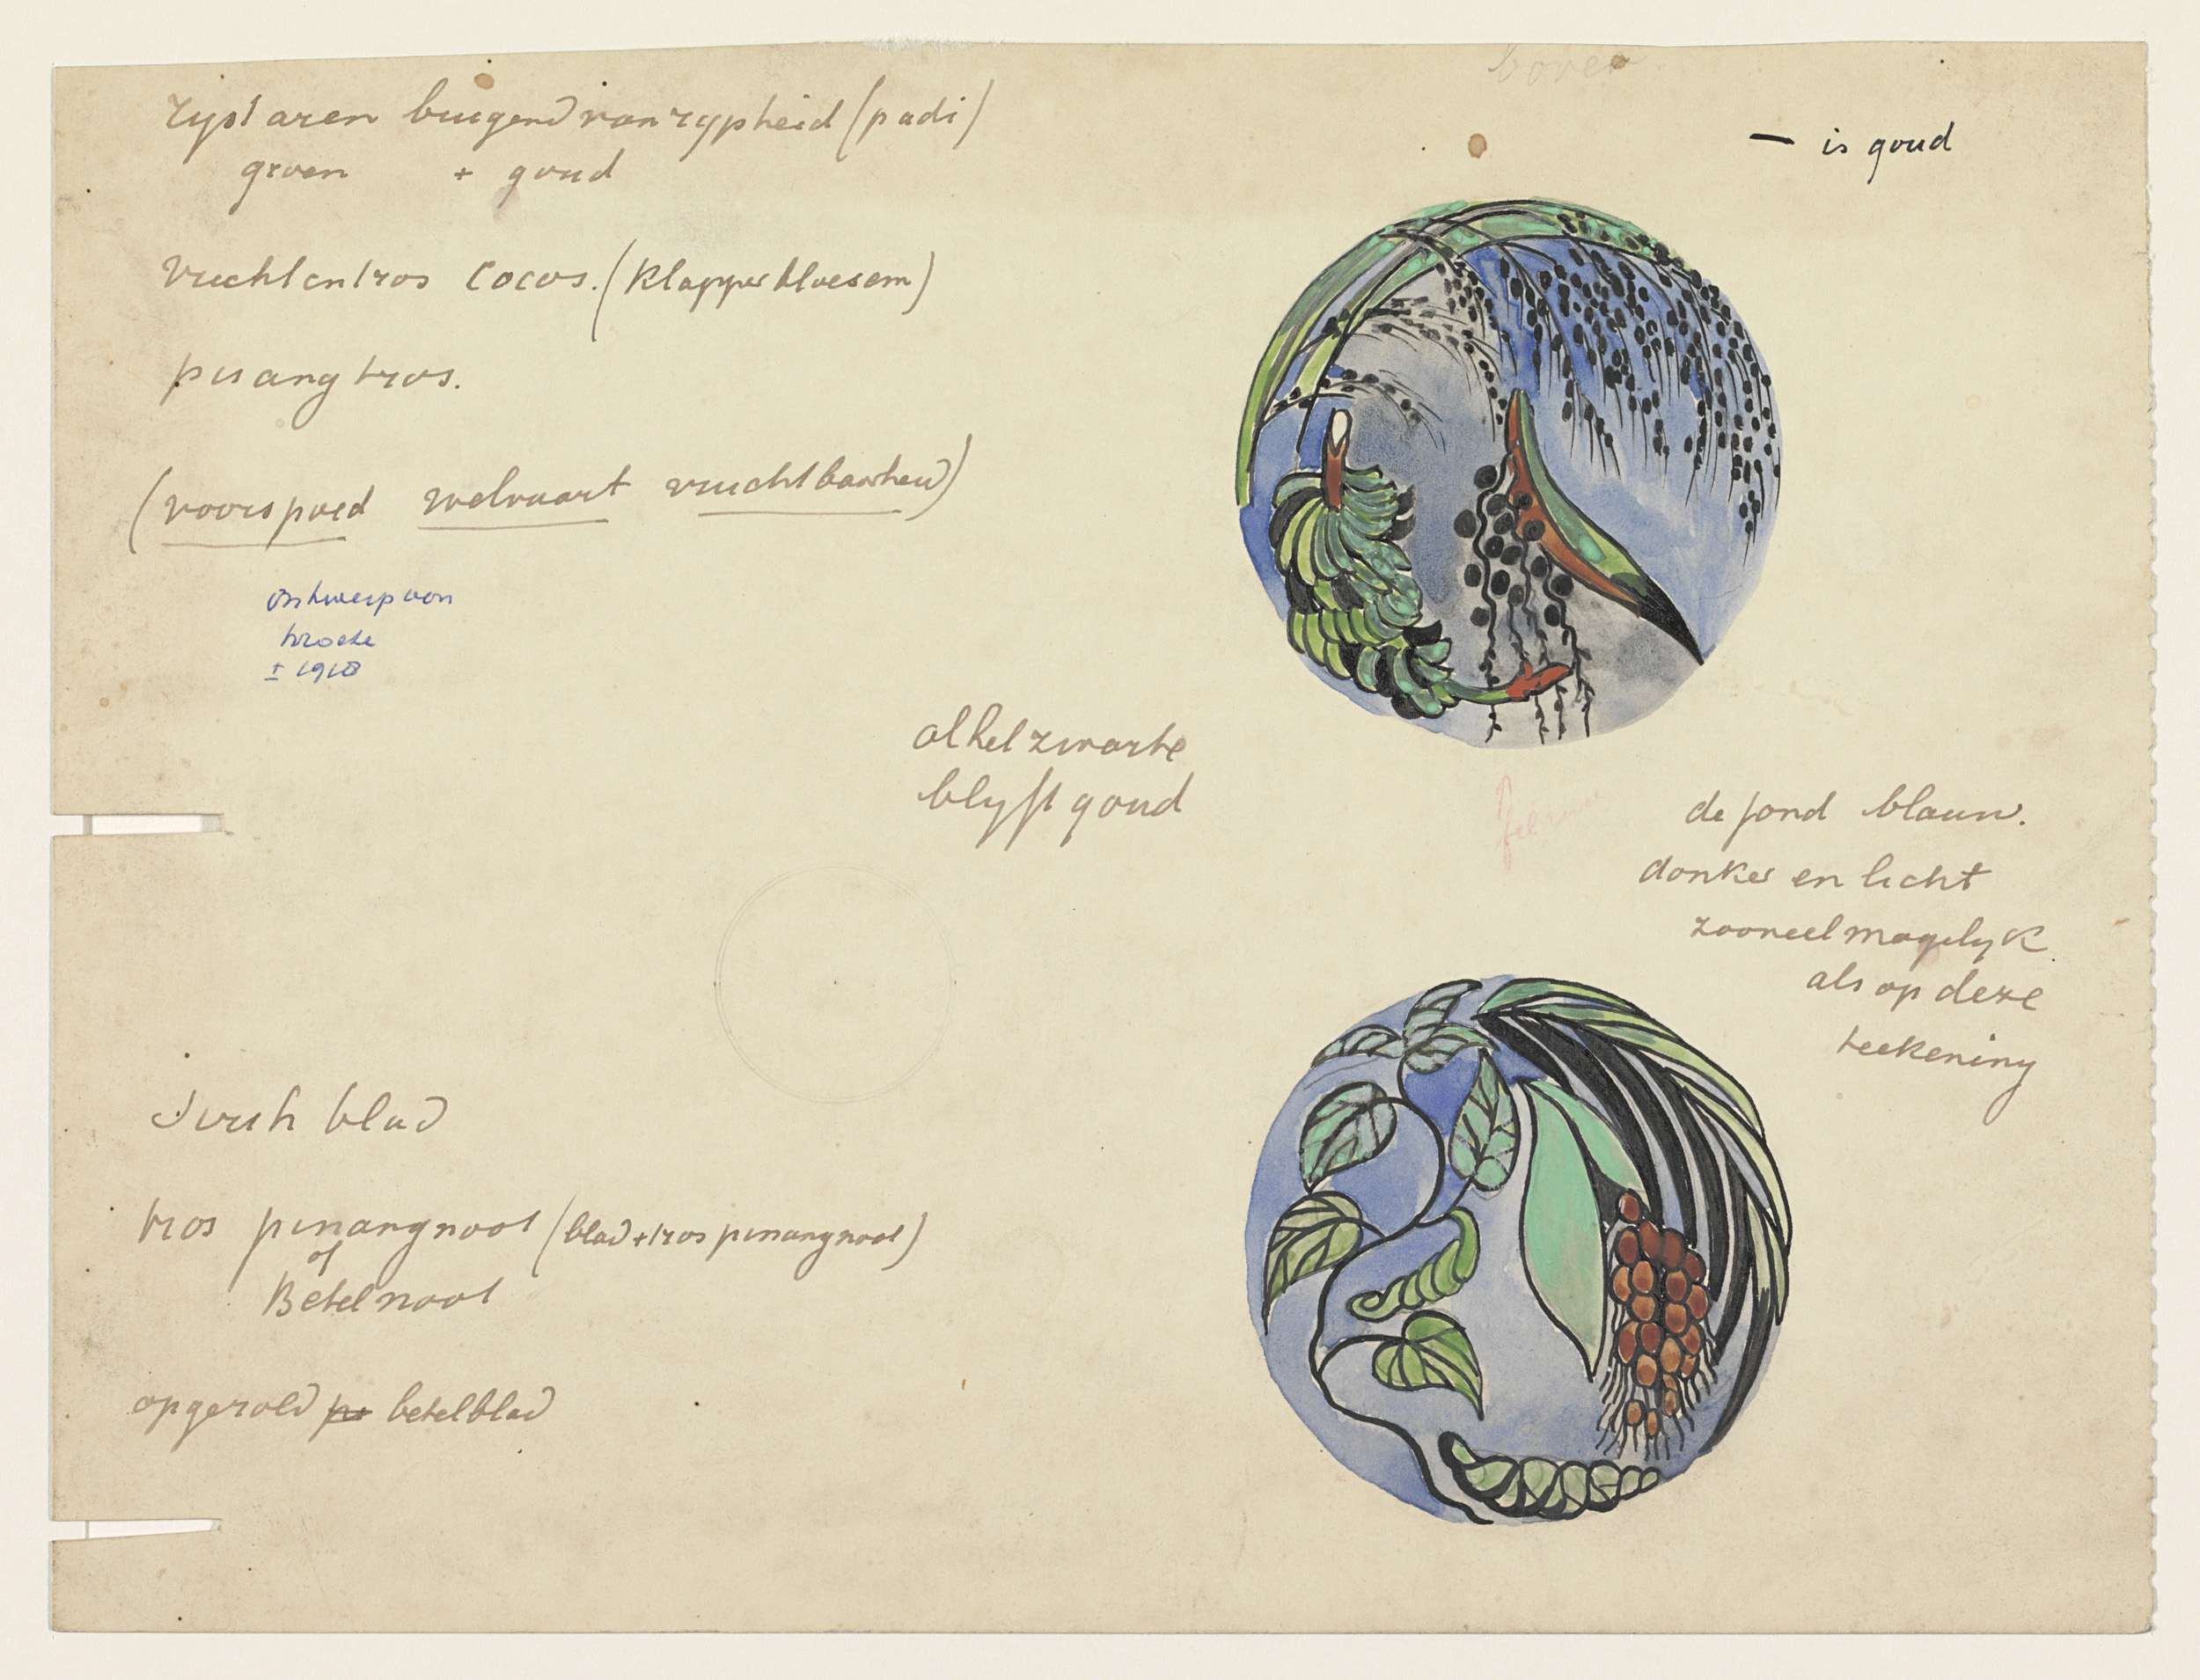 boven
— is goud
rystaren buigend van rypheid (padi)
groen + goud
vruchtentros cocos. (Klapperbloesem)
pisangtros.
(voorspoed welvaart vruchtbaarheid)
ontwerp voor
broche
± 1918
al het zwarte
blyft goud
de fond blauw.
donker en licht
zooveel mogelyk
als op deze
teekening
Sirih blad
tros pinangnoot (blad + tros pinangnoot)
of
Betelnoot
opgerold betelblad